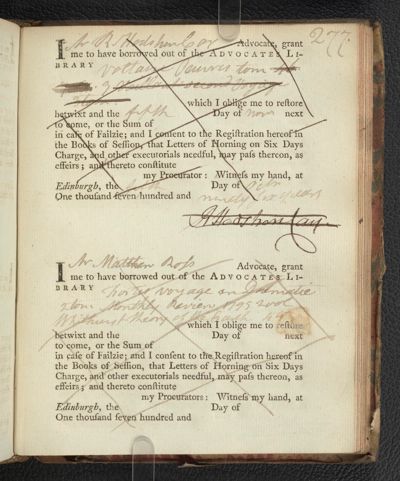 277
I Mr R. Hodshon Cay Advocate, grant
me to have borrowed out of the ADVOCATES LI-
BRARY Voltaire Oeuvres tom
which I oblige me to reſtore
betwixt and the fifth Day of Novr next
to come, or the Sum of
in caſe of Failzie; and I conſent to the Regiſtration hereof in
the Books of Seſſion, that Letters of Horning on Six Days
Charge, and other executorials needful, may paſs thereon, as
effeirs; and thereto conſtitute
my Procurator: Witneſs my hand, at
Edinburgh, the Day of
One thouſand ſeven hundred and ninety
R Hodshon Cay
I Mr Matthew Roſs Advocate, grant
me to have borrowed out of the ADVOCATES LI-
BRARY voyage
2 tom Monthly Review 1795 2 vol
Theory of the Earth
which I oblige me to reſtore
betwixt and the Day of next
to come, or the Sum of
in caſe of Failzie; and I conſent to the Regiſtration hereof in
the Books of Seſſion, that Letters of Horning on Six Days
Charge, and other executorials needful, may paſs thereon, as
effeirs; and thereto conſtitute
my Procurators: Witneſs my hand, at
Edinburgh, the Day of
One thouſand ſeven hundred and